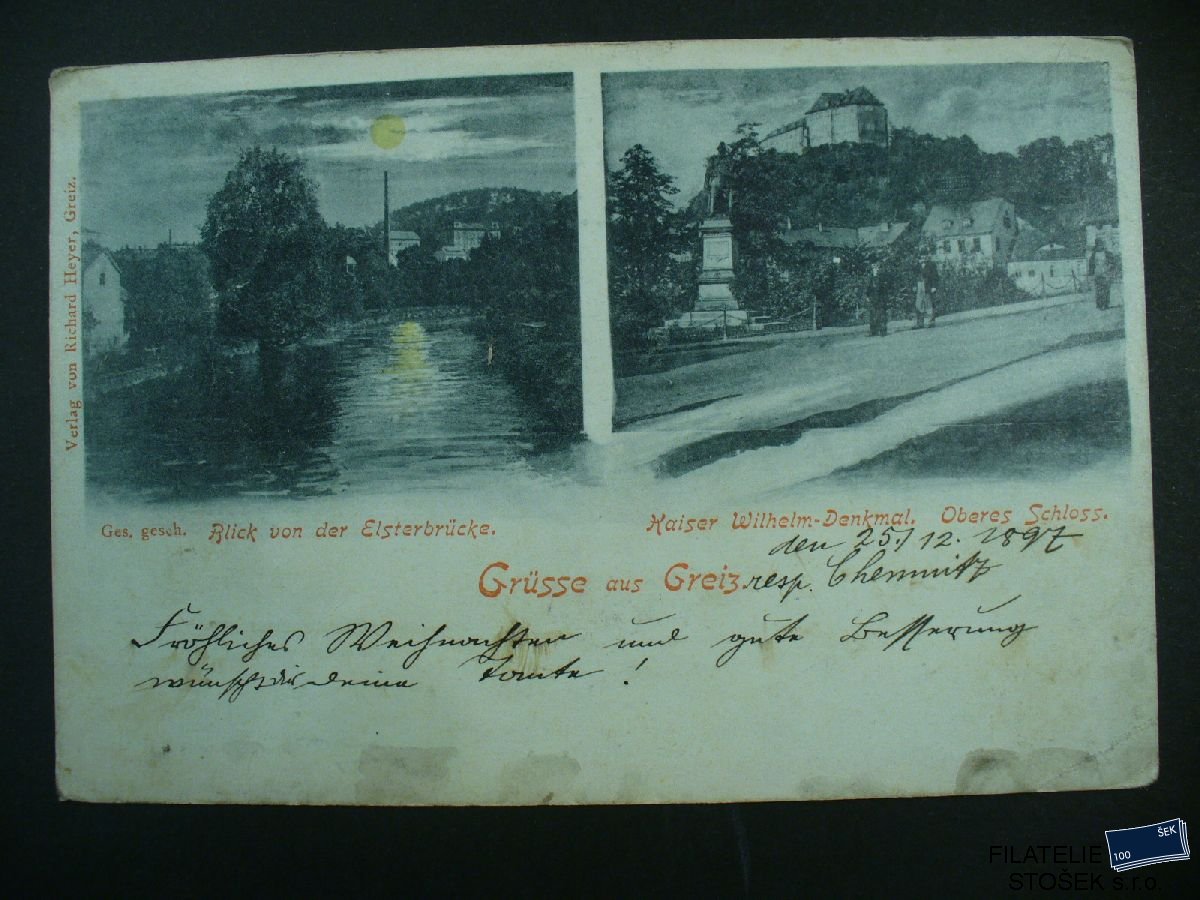 Verlag von Richard Heyer, Greiz.
Ges. gesch. Blick von der Elsterbrücke.
Kaiser Wilhelm-Denkmal. Oberes Schloss.
den 25./12. 1897
Grüsse aus Greiz resp. Chemnitz
Fröhliches Weihnachten und gute Besserung
wünscht dir deine Tante!
100 ŠEK
FILATELIE
STOŠEK s.r.o.